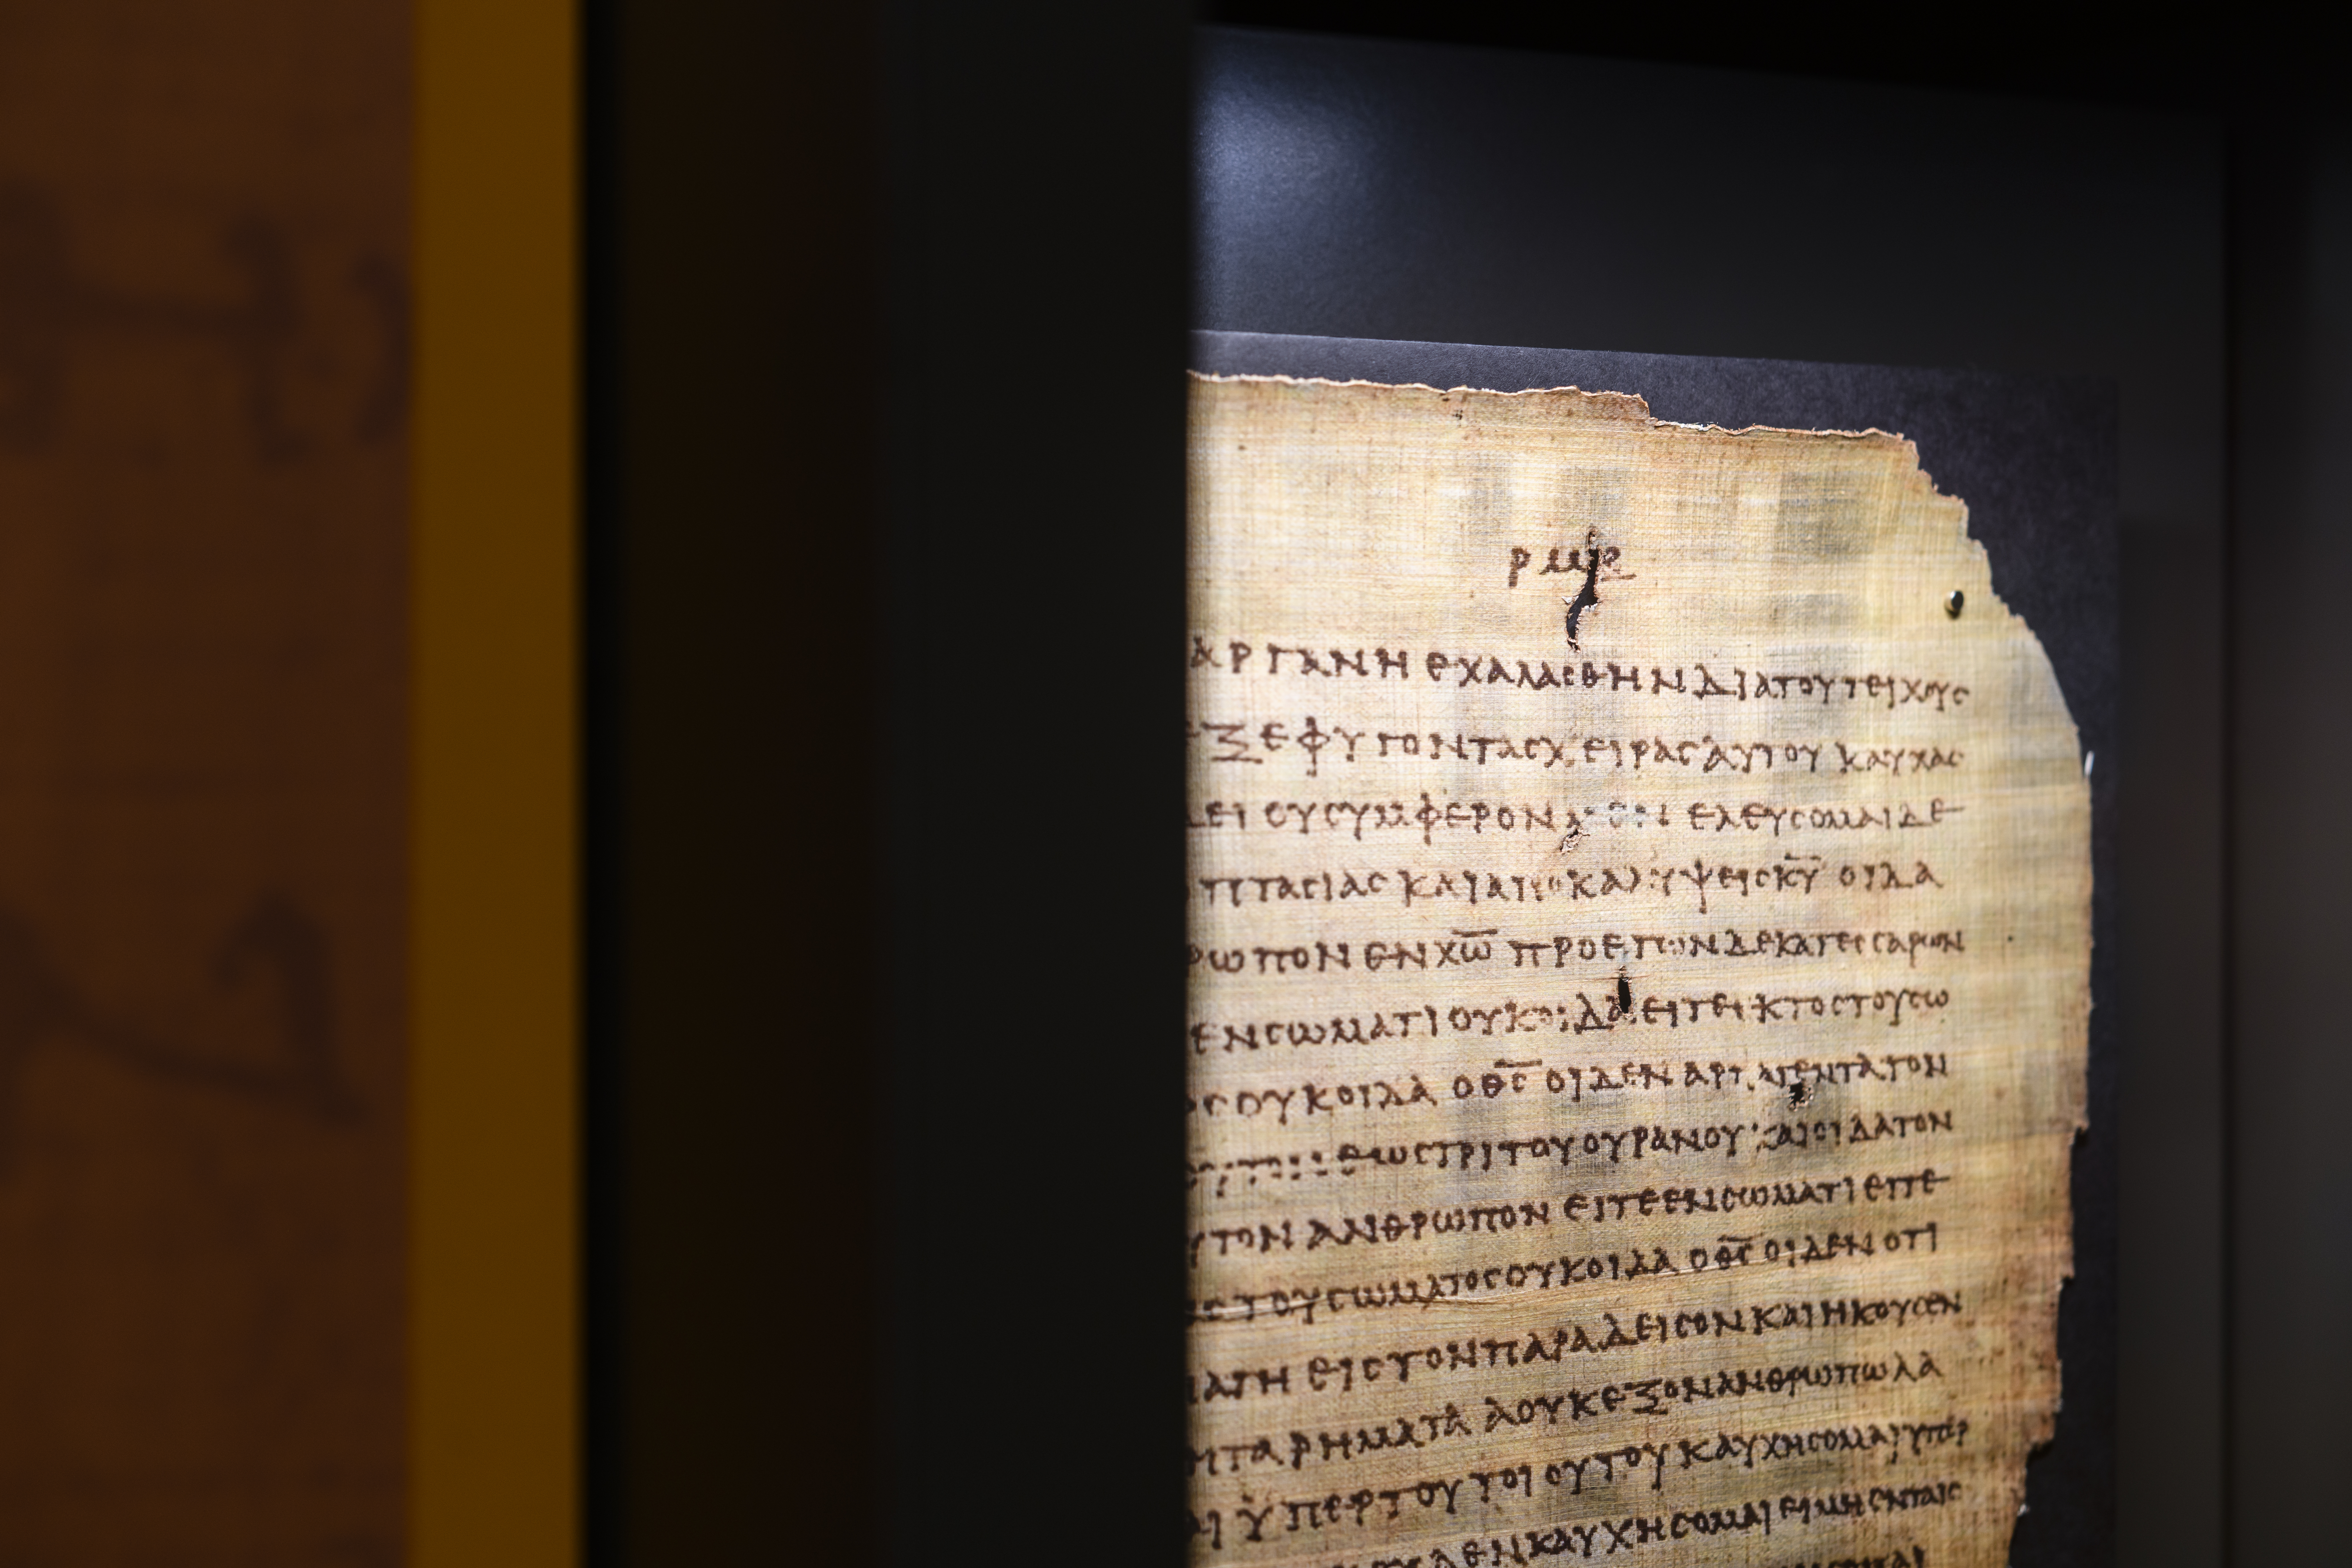 ΑΡΓΑΝΗ ΕΧΑΛΑCΘΗΝ ΔΙΑ ΤΟΥ ΤΕΙΧΟΥC
ΞΕΦΥΓΟΝ ΤΑC ΧΕΙΡΑC ΑΥΤΟΥ ΚΑΥΧΑC
ΔΕΙ ΟΥ CΥΜΦΕΡΟΝ ΕΛΕΥCΟΜΑΙ ΔΕ
ΟΠΤΑCΙΑC ΚΑΙ ΑΠΟΚΑΛΥΨΕΙC Κ̅Υ̅ ΟΙΔΑ
ΡΩΠΟΝ ΕΝ Χ̅Ω̅ ΠΡΟ ΕΤΩΝ ΔΕΚΑΤΕCCΑΡΩΝ
ΕΝ CΩΜΑΤΙ ΟΥΚ ΟΙΔΑ ΕΙΤΕ ΕΚΤΟC ΤΟΥ CΩ
ΟC ΟΥΚ ΟΙΔΑ Ο Θ̅C̅ ΟΙΔΕΝ ΑΡΠΑΓΕΝΤΑ ΤΟΝ
ΕΩC ΤΡΙΤΟΥ ΟΥΡΑΝΟΥ ΚΑΙ ΟΙΔΑ ΤΟΝ
ΥΤΟΝ ΑΝΘΡΩΠΟΝ ΕΙΤΕ ΕΝ CΩΜΑΤΙ ΕΙΤΕ
C ΤΟΥ CΩΜΑΤΟC ΟΥΚ ΟΙΔΑ Ο Θ̅C̅ ΟΙΔΕΝ ΟΤΙ
ΠΑΓΗ ΕΙC ΤΟΝ ΠΑΡΑΔΕΙCΟΝ ΚΑΙ ΗΚΟΥCΕΝ
ΗΤΑ ΡΗΜΑΤΑ Α ΟΥΚ ΕΞΟΝ ΑΝΘΡΩΠΩ ΛΑ
ΑΙ ΥΠΕΡ ΤΟΥ ΤΟΙΟΥΤΟΥ ΚΑΥΧΗCΟΜΑΙ ΥΠΕΡ
ΔΕΝ ΚΑΥΧΗCΟΜΑΙ ΕΙ ΜΗ ΕΝ ΤΑΙC